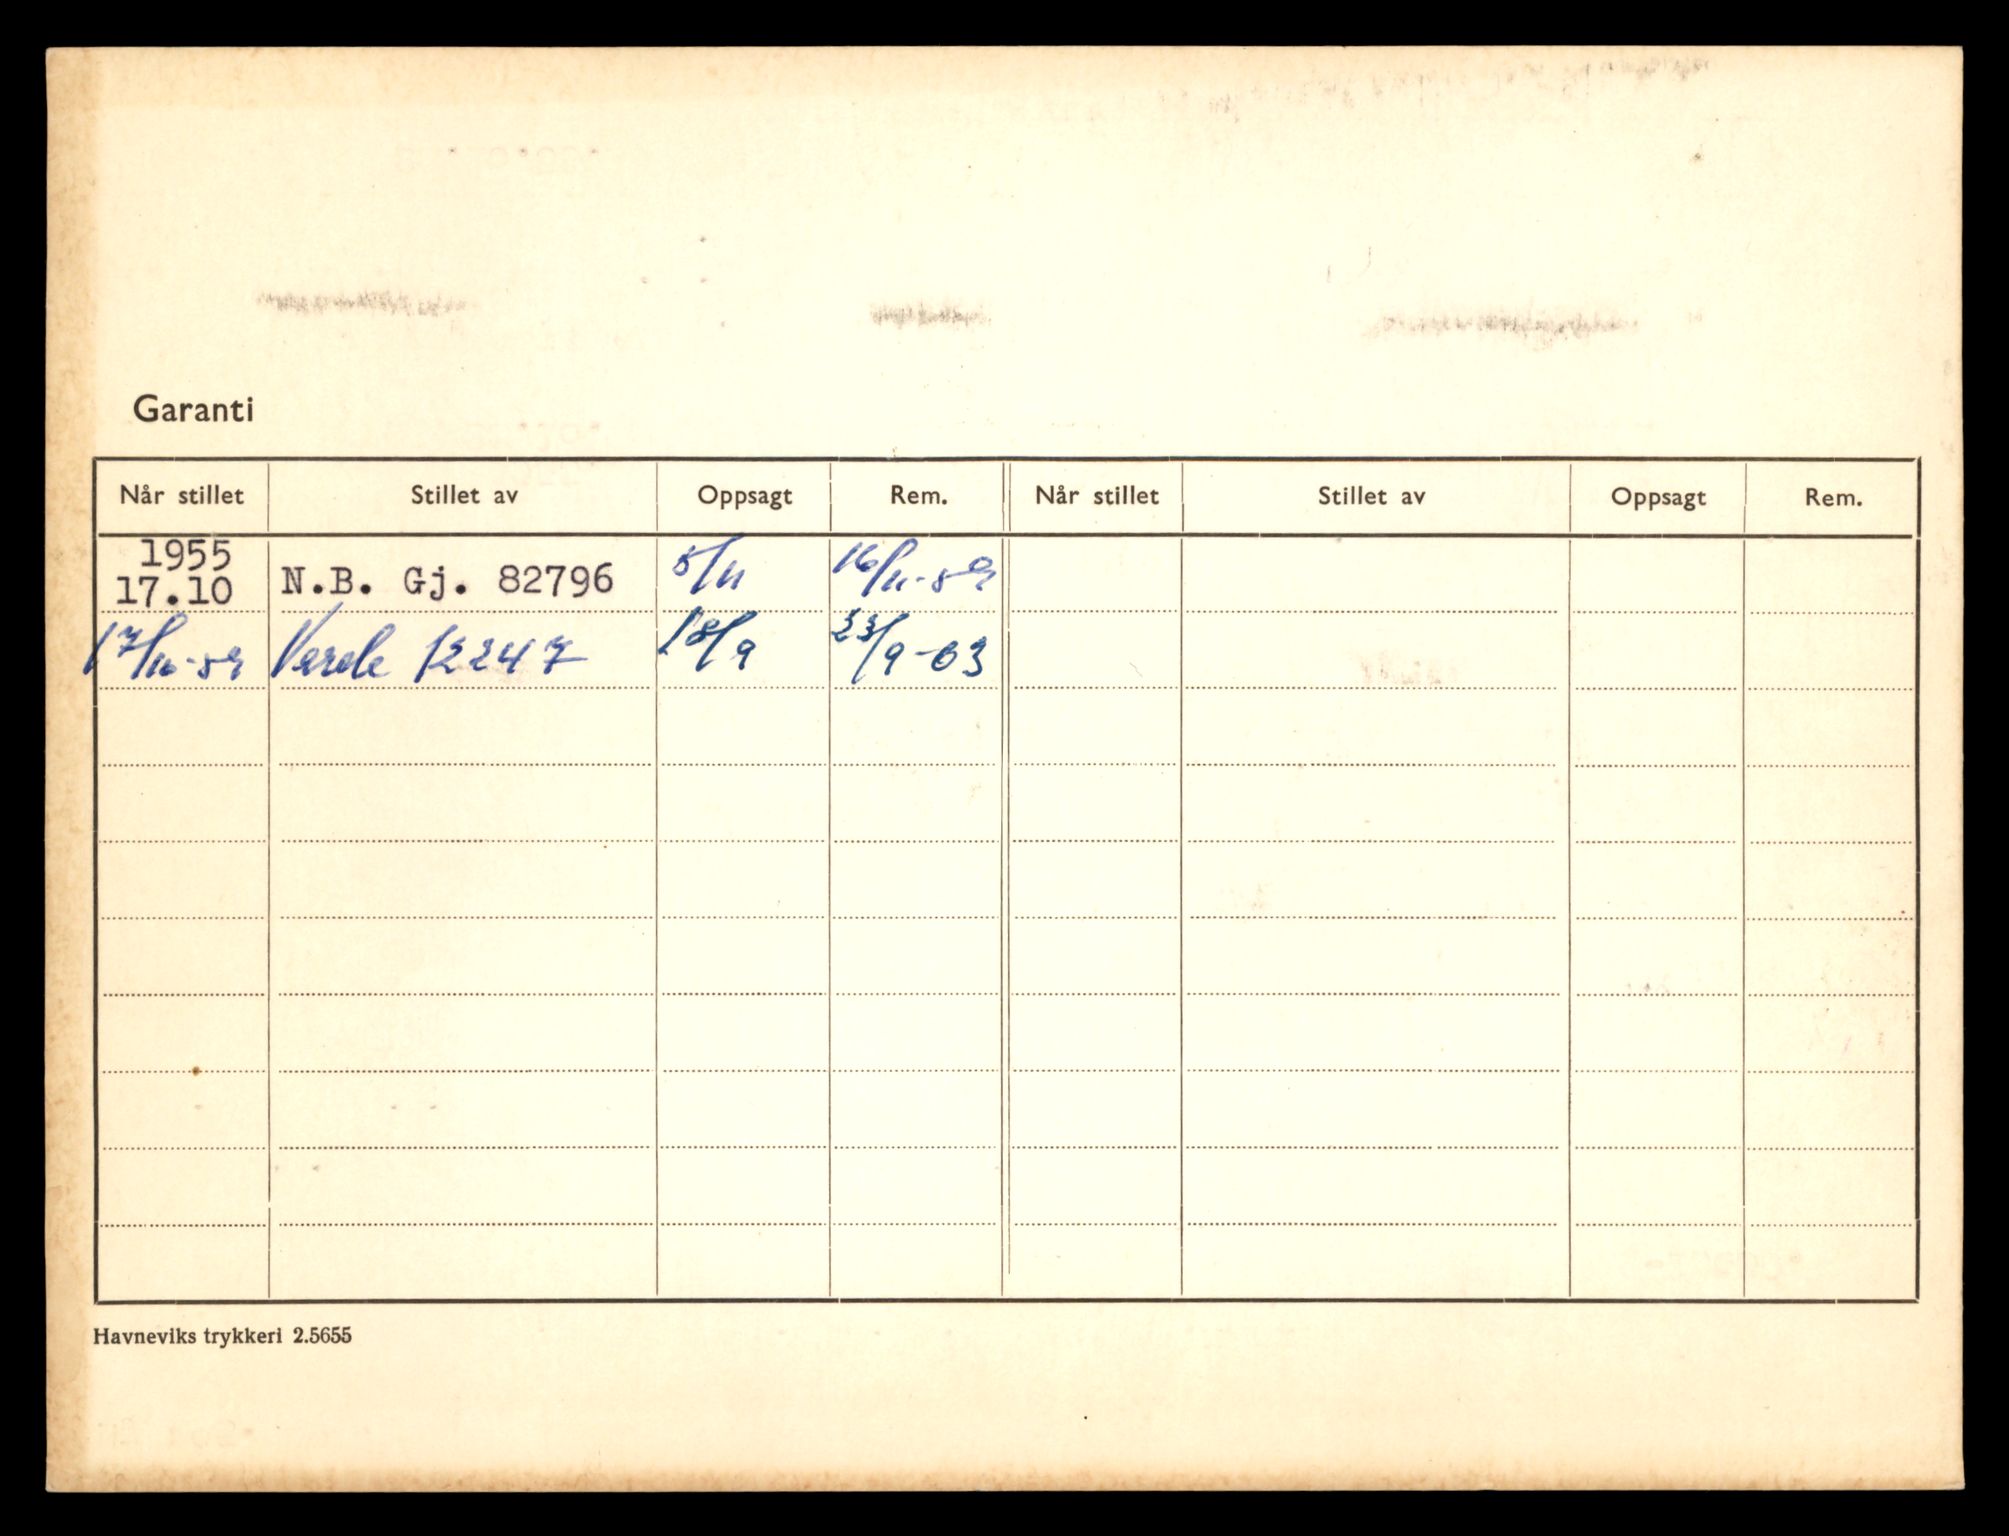 Garanti
Når stillet Stillet av Oppsagt Rem. Når stillet Stillet av Oppsagt Rem.
1955
17.10 N.B. Gj. 82796 5/11 16/11-59
17/10-59 Varde 12247 18/9 23/9-63
Havneviks trykkeri 2.5655